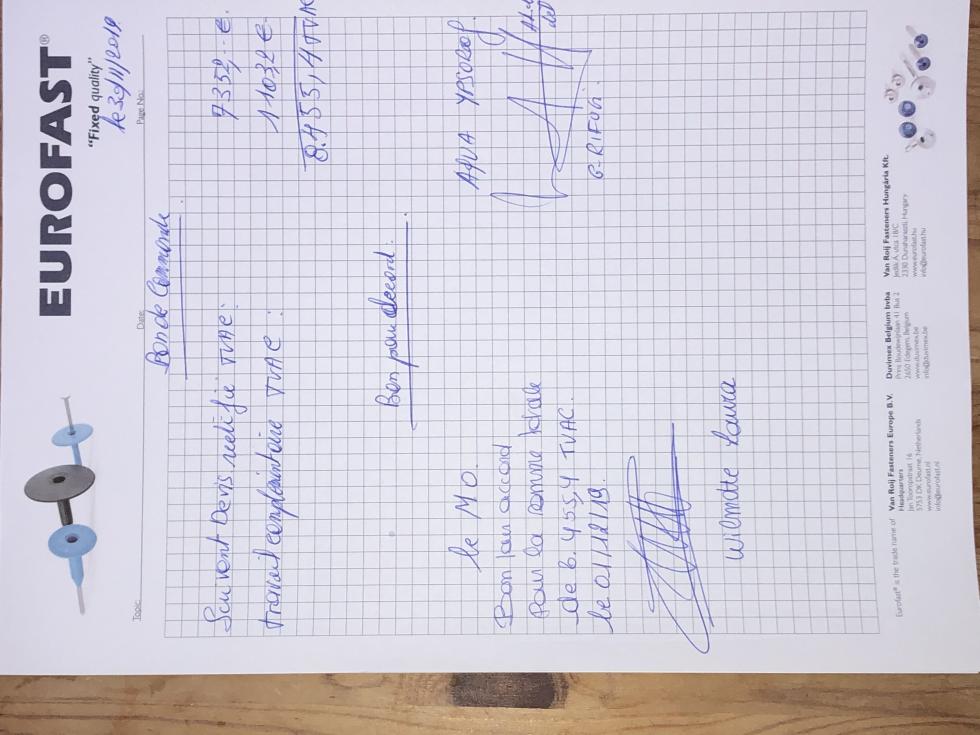 EUROFAST®
"Fixed quality"
Topic:
Date:
Page No.:
le 30/11/2019
Bon de Commande
Suivant Devis rectifié TVAC : 7352,-- €.
travail complémentaire TVAC : 1103,4 €
8.455,4 TVAC
Bon pour accord.
le M.O.
AQUA YPSOROOF
Bon pour accord
Pour la somme totale
de 8.455,4 TVAC.
le 01/12/19.
G-RIFUGI.
Wilmotte Laura
Eurofast® is the trade name of
Van Roij Fasteners Europe B.V.
Headquarters
Jan Tooropstraat 16
5753 DK Deurne, Netherlands
www.eurofast.nl
info@eurofast.nl
Duvimex Belgium bvba
Prins Boudewijnlaan 41 Bus 2
2650 Edegem, Belgium
www.duvimex.be
info@duvimex.be
Van Roij Fasteners Hungária Kft.
Jedlik Á. utca 18/C
2330 Dunaharaszti, Hungary
www.eurofast.hu
info@eurofast.hu